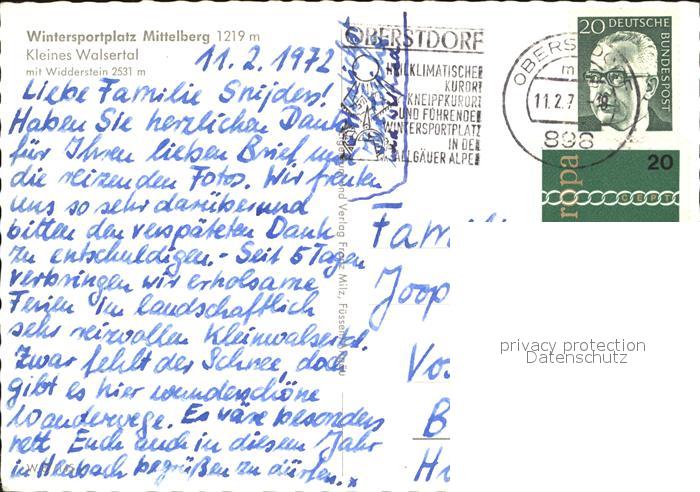 Wintersportplatz Mittelberg 1219 m
Kleines Walsertal
mit Widderstein 2531 m
11.2.1972.
Liebe Familie Snijders!
Haben Sie herzlichen Dank
für Ihren lieben Brief und
die reizenden Fotos. Wir freuten
uns so sehr darüber und
bitten den verspäteten Dank
zu entschuldigen. - Seit 5 Tagen
verbringen wir erholsame
Ferien im landschaftlich
sehr reizvollen Kleinwalsertal.
Zwar fehlt der Schnee, doch
gibt es hier wunderschöne
Wanderwege. Es wäre besonders
nett Euch auch in diesem Jahr
in begrüßen zu dürfen.
und Verlag Franz Milz, Füssen
OBERSTDORF
HEILKLIMATISCHER
KURORT
KNEIPPKURORT
UND FÜHRENDER
WINTERSPORTPLATZ
IN DEN
ALLGÄUER ALPEN
OBERSTDORF
11.2.7
898
20 DEUTSCHE
BUNDESPOST
ropa
20
CEPT
Fam
Joop
Vo
B
privacy protection
Datenschutz